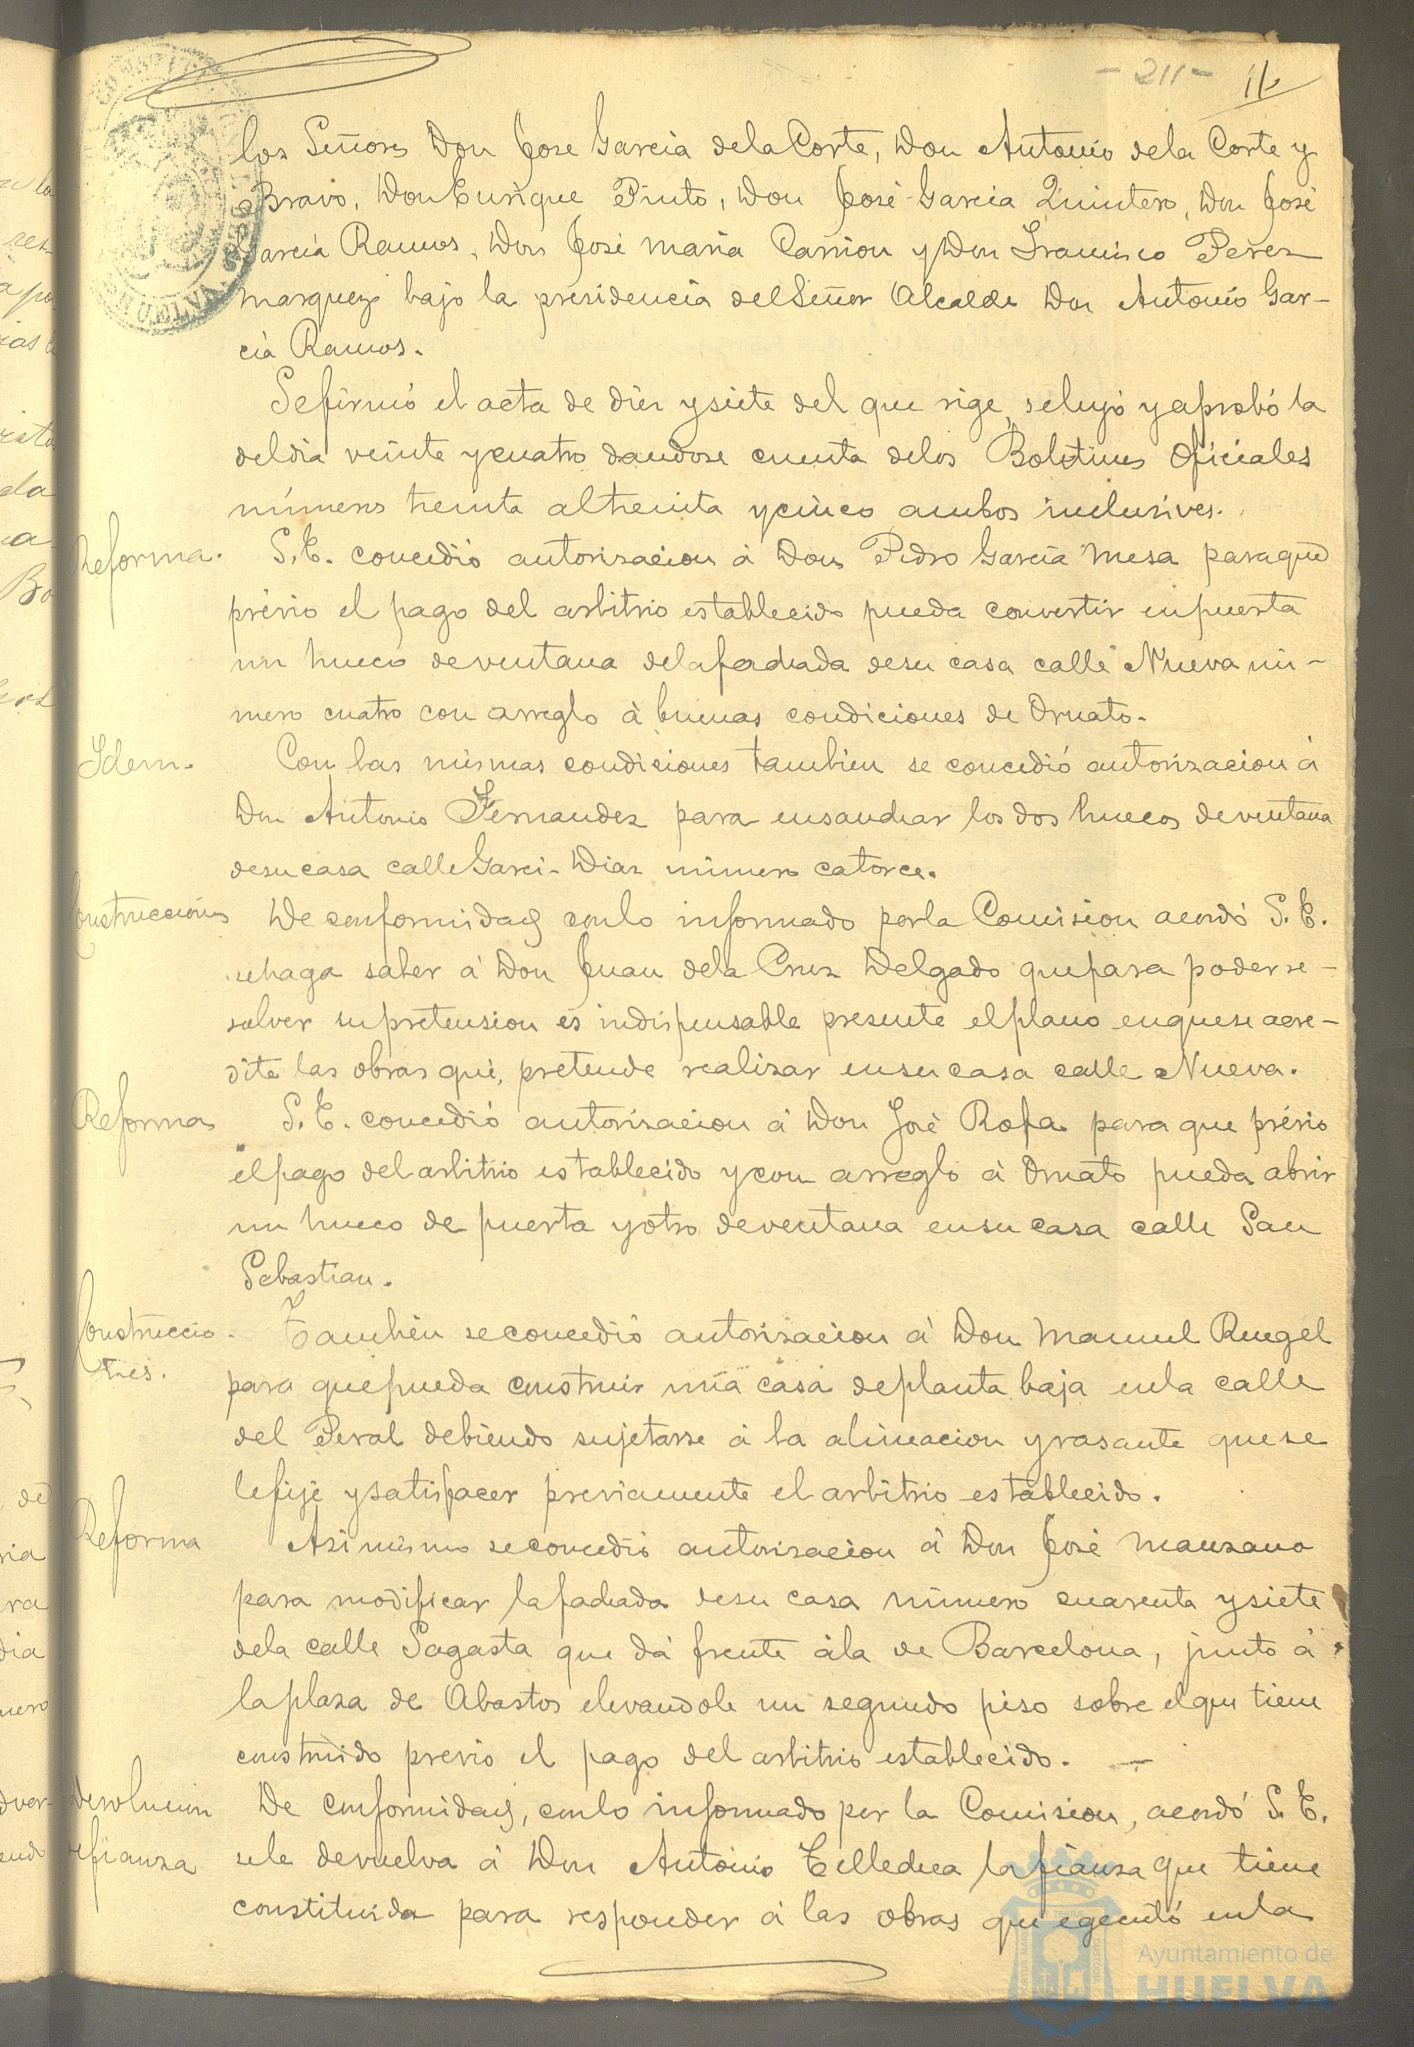 - 211 - 11
los Señores Don Jose Garcia dela Corte, Don Antonio dela Corte y
Bravo, Don Enrique Pinto, Don José Garcia Quintero, Don José
Garcia Ramos, Don José Maria Carrion y Don Francisco Perez
Marquez bajo la presidencia del Señor Alcalde Don Antonio Gar-
cia Ramos.
Se firmó el acta de diez y siete del que rige, se leyó y aprobó la
del dia veinte y cuatro dandose cuenta delos Boletines Oficiales
números treinta al treinta y cinco ambos inclusives.
Reforma.
S. E. concedió autorizacion à Don Pedro Garcia Mesa para que
prévio el pago del arbitrio establecido pueda convertir en puerta
un hueco de ventana dela fachada de su casa calle Nueva nú-
mero cuatro con arreglo à buenas condiciones de Ornato.
Idem.
Con las mismas condiciones tambien se concedió autorizacion à
Don Antonio Fernandez para ensanchar los dos huecos de ventana
de su casa calle Garci-Diaz número catorce.
Construcciones
De conformidad con lo informado por la Comision acordó S. E.
se haga saber à Don Juan dela Cruz Delgado que para poder re-
solver su pretension es indispensable presente el plano en que se acre-
dite las obras que, pretende realizar en su casa calle Nueva.
Reforma
S. E. concedió autorizacion à Don José Rofa para que prévio
el pago del arbitrio establecido y con arreglo à Ornato pueda abrir
un hueco de puerta y otro de ventana en su casa calle San
Sebastian.
Construccio-
nes.
Tambien se concedió autorizacion à Don Manuel Rengel
para que pueda construir una casa de planta baja en la calle
del Peral debiendo sujetarse à la alineacion y rasante que se
le fije y satisfacer previamente el arbitrio establecido.
Reforma
Asimismo se concedió autorizacion à Don José Manzano
para modificar la fachada de su casa número cuarenta y siete
dela calle Sagasta que dá frente àla de Barcelona, junto à
la plaza de Abastos elevandole un segundo piso sobre el que tiene
construido previo el pago del arbitrio establecido.
Devolucion
de fianza
De conformidad, con lo informado por la Comision, acordó S. E.
se le devuelva à Don Antonio Tellechea la fianza que tiene
constituida para responder à las obras que egecutó en la
Ayuntamiento de
HUELVA